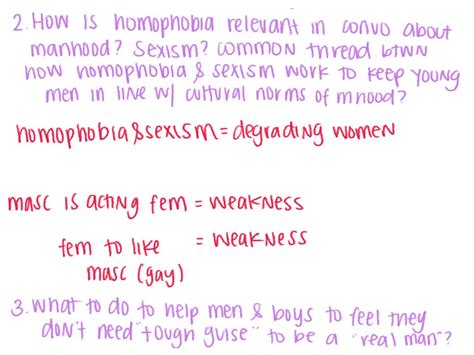 2. How is homophobia relevant in convo about
manhood? Sexism? common thread btwn
how homophobia & sexism work to keep young
men in line w/ cultural norms of mhood?
homophobia & sexism = degrading women
masc is acting fem = weakness
fem to like = weakness
masc (gay)
3. what to do to help men & boys to feel they
don't need "tough guise" to be a "real man"?